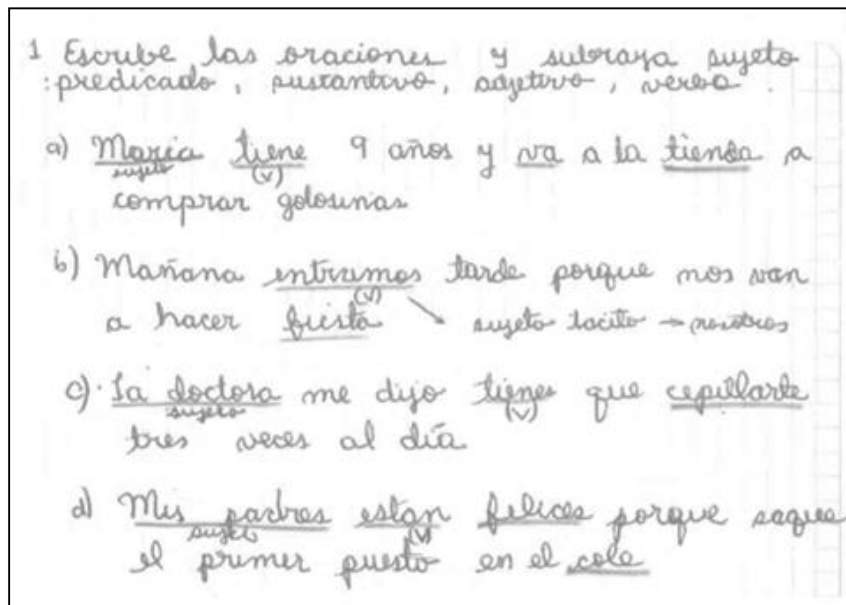 1 Escribe las oraciones y subraya sujeto
: predicado, sustantivo, adjetivo, verbo.
a) Maria tiene 9 años y va a la tienda a
sujeto (v)
comprar golosinas
b) Mañana entramos tarde porque nos van
(v)
a hacer fiesta sujeto tacito → nosotros
c) La doctora me dijo tienes que cepillarte
sujeto (v)
tres veces al día
d) Mis padres estan felices porque saque
sujeto (v)
el primer puesto en el cole